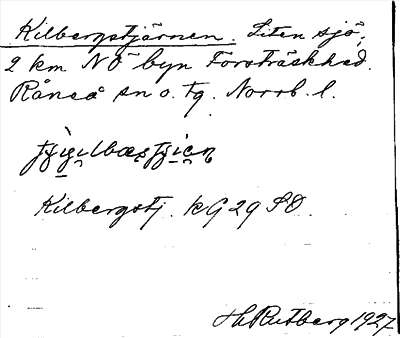 Kilbergstjärnen. Liten sjö,
2 km NÖ byn Forsträskhed.
Råneå sn o. tg. Norrb. l.
Kilbergstj. KG 29 SO.
Hh Rutberg 1927